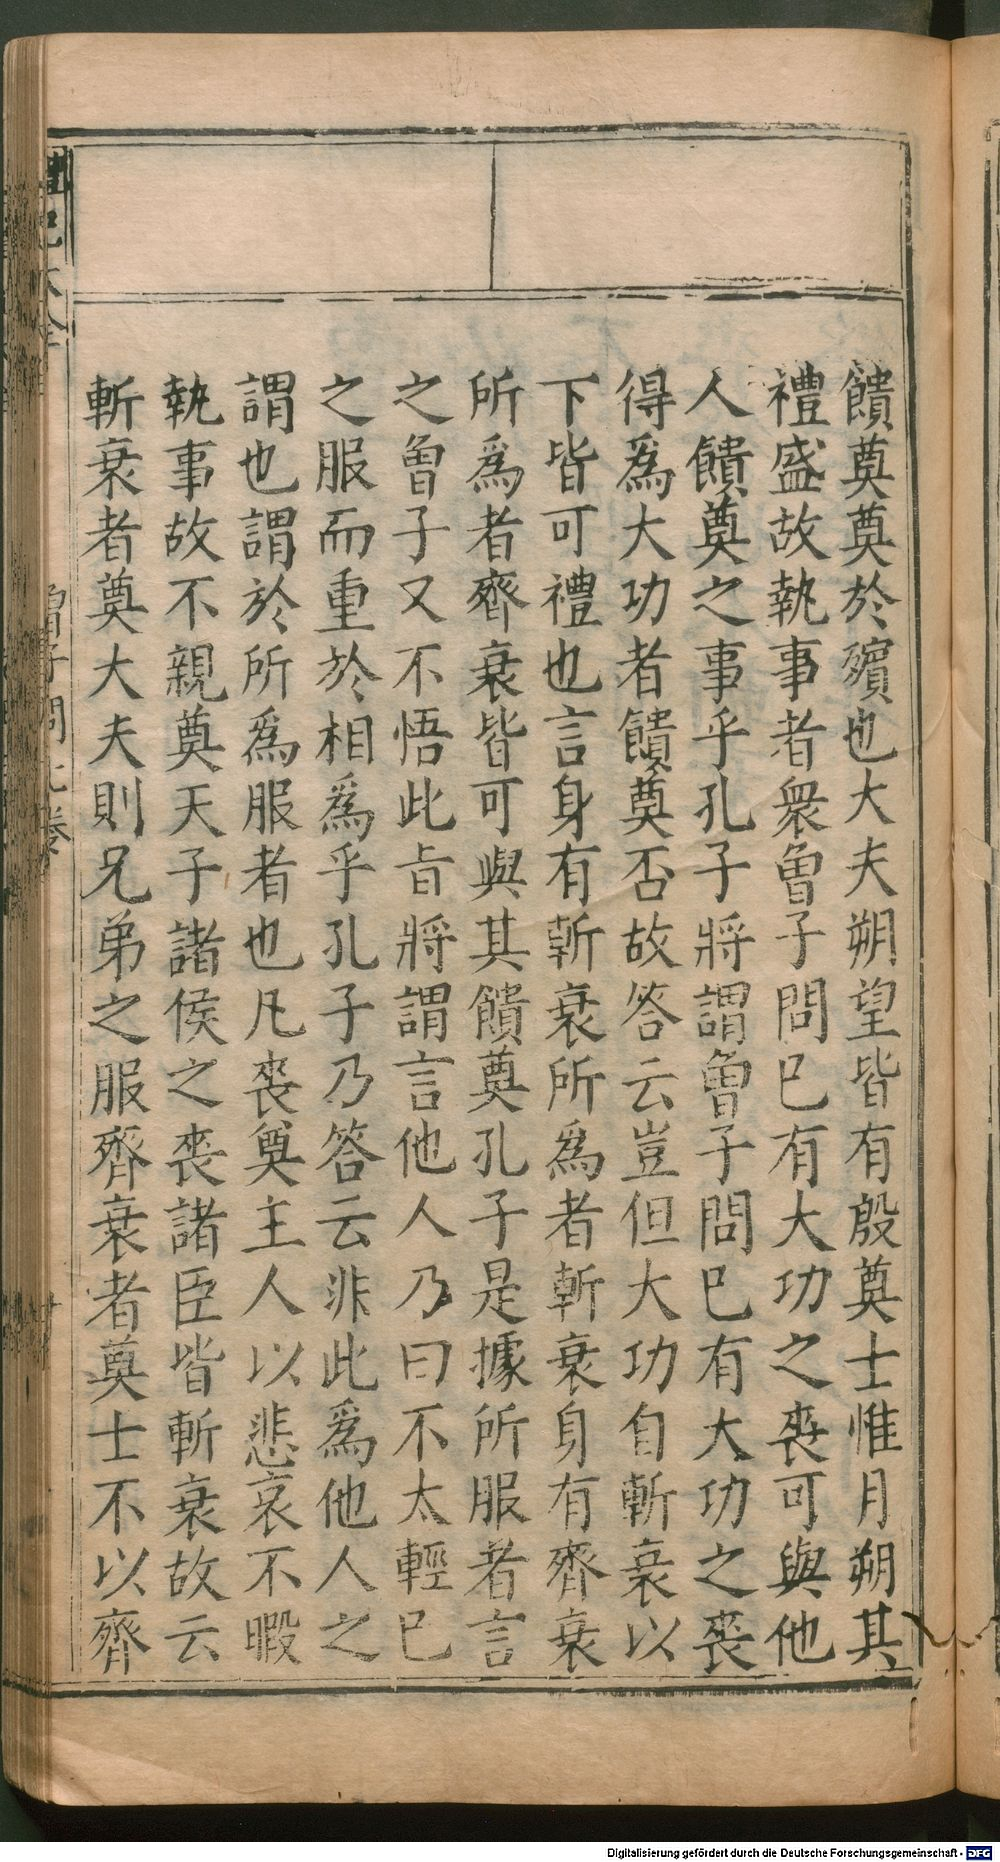 饋奠奠於殯也大夫朔望皆有殷奠士惟月朔其
禮盛故執事者衆曾子問已有大功之喪可與他
人饋奠之事乎孔子將謂曾子問已有大功之喪
得爲大功者饋奠否故答云豈但大功自斬衰以
下皆可禮也言身有斬衰所爲者斬衰身有齊衰
所爲者齊衰皆可與其饋奠孔子是據所服者言
之曾子又不悟此旨將謂言他人乃曰不太輕已
之服而重於相爲乎孔子乃答云非此爲他人之
謂也謂於所爲服者也凡喪奠主人以悲哀不暇
執事故不親奠天子諸侯之喪諸臣皆斬衰故云
斬衰者奠大夫則兄弟之服齊衰者奠士不以齊
禮記大全
曾子問七卷
Digitalisierung gefördert durch die Deutsche Forschungsgemeinschaft - DFG